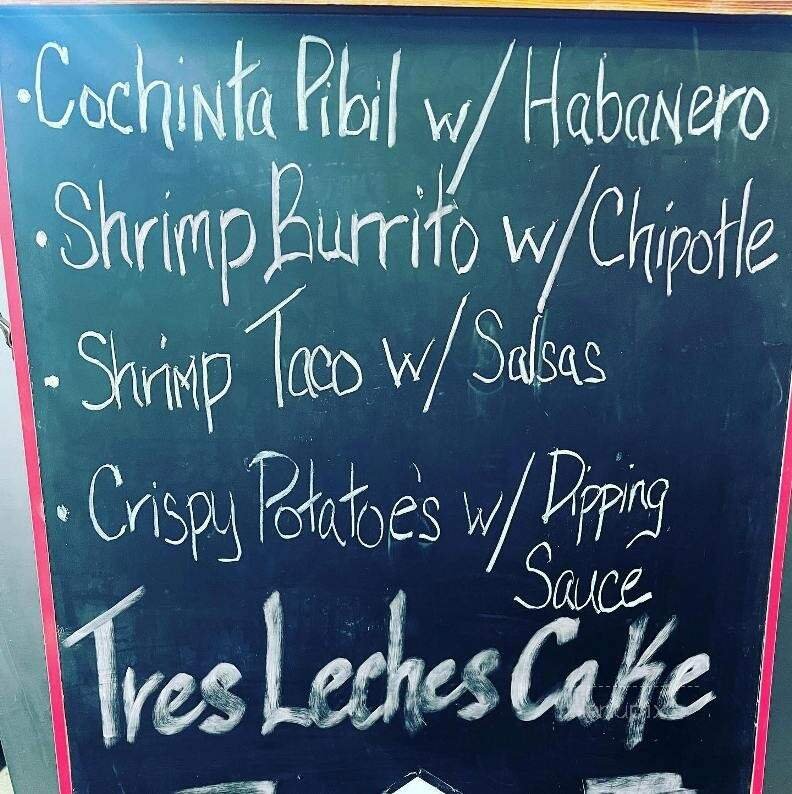 • Cochinta Pibil w/ Habanero
• Shrimp Burrito w/ Chipotle
• Shrimp Taco w/ Salsas
• Crispy Potatoe's w/ Dipping
Sauce
Tres Leches Cake